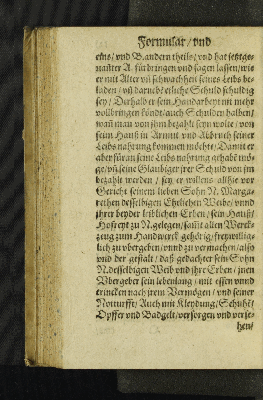 Formular/ vnd
eins/ vnd B. andern theils/ vnd hat jetztge-
nañter A. fürbringen vnd sagen lassen/ wie
er mit Alter vñ schwachheit seines Leibs be-
laden/ vñ darneb erliche Schuld schuldig
sey/ Derhalb er sein Handarbeyt nit mehr
vollbringen köndt/ auch Schulden halben/
wañ man von jhm bezahlt seyn wolt/ von
sein Hauß in Armut vnd Abbruch seiner
Leibs nahrung kommen möchte/ Damit er
aber füran seine Leibs nahrung gehabē mö-
ge/ vñ seine Glaubiger jrer Schuld von jm
bezahlt werden/ sey er willens allhie vor
Gericht seinem lieben Sohn N. Marga-
rethen desselbigen Ehelichen Weibe/ vnnd
jhrer beyder leiblichen Erben/ sein Hauß/
Hofreyt zu N. gelegen/ sampt allem Werck-
zeug zum Handwerck gehörig/ freywillig-
lich zu vbergeben/ vnnd zu vermachen/ also
vnd der gestalt/ daß gedachter sein Sohn
N. desselbigen Weib vnd jhre Erben/ jnen
Vbergeber sein lebenlang/ mit essen vnnd
trincken nach jrem Vermögen/ vnd seiner
Notturfft/ Auch mit Kleydung/ Schuhē/
Opffer vnd Badgelt/ versorgen vnd verse-
hen/